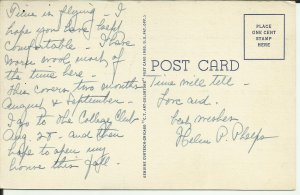 Time is flying – I
hope you have been
comfortable – I have
worn wool much of
the time here –
This covers two months
August & September –
I go to the College Club
Aug. 25 – and then
hope to open my
house this fall –
POST CARD
PLACE
ONE CENT
STAMP
HERE
Time will tell –
Love and
best wishes
Helen P. Phelps